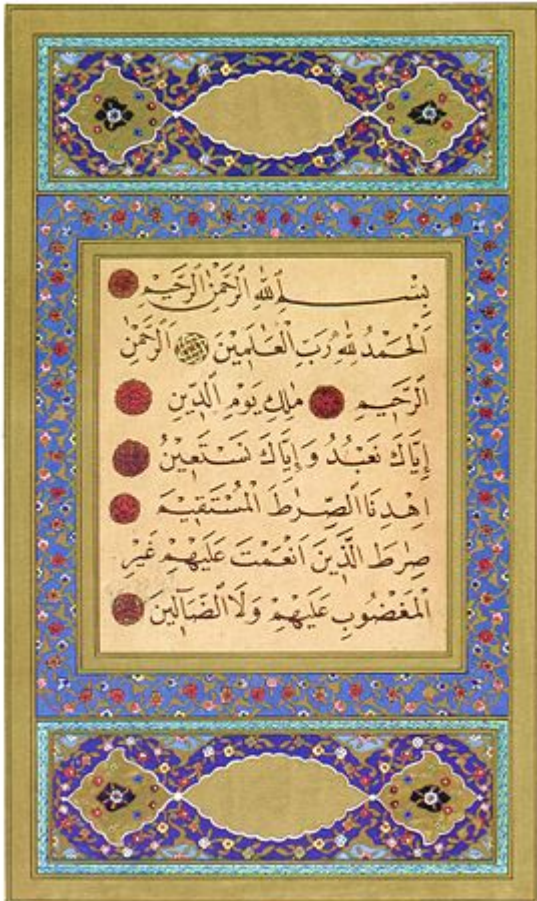 بِسْمِ اللهِ الرَّحْمٰنِ الرَّحِيمِ
اَلْحَمْدُ لِلهِ رَبِّ الْعَالَمِينَ اَلرَّحْمٰنِ
الرَّحِيمِ مٰلِكِ يَوْمِ الدِّينِ
إِيَّاكَ نَعْبُدُ وَإِيَّاكَ نَسْتَعِينُ
اهْدِنَا الصِّرٰطَ الْمُسْتَقِيمَ
صِرٰطَ الَّذِينَ اَنْعَمْتَ عَلَيْهِمْ غَيْرِ
الْمَغْضُوبِ عَلَيْهِمْ وَلَا الضَّٓالِّينَ